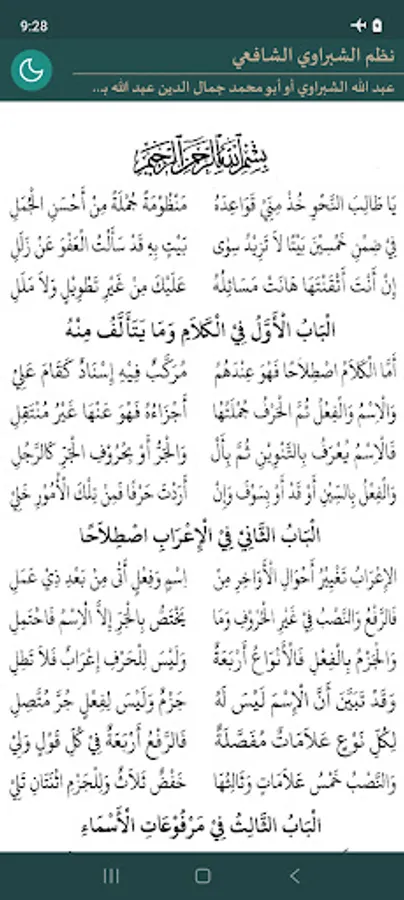 9:28
نظم الشبراوي الشافعي
عبد الله الشبراوي أو أبو محمد جمال الدين عبد الله بـ...
بِسْمِ ٱللَّهِ ٱلرَّحْمَنِ ٱلرَّحِيمِ
يَا طَالِبَ النَّحْوِ خُذْ مِنِّيْ قَوَاعِدَهُ مَنْظُوْمَةً جُمْلَةً مِنْ أَحْسَنِ الْجُمَلِ
فِيْ ضِمْنِ خَمْسِيْنَ بَيْتًا لَا تَزِيْدُ سِوٰى بَيْتٍ بِهِ قَدْ سَأَلْتُ الْعَفْوَ عَنْ زَلَلِ
إِنْ أَنْتَ أَتْقَنْتَهَا هَانَتْ مَسَائِلُهُ عَلَيْكَ مِنْ غَيْرِ تَطْوِيْلٍ وَلَا مَلَلِ
الْبَابُ الْأَوَّلُ فِيْ الْكَلَامِ وَمَا يَتَأَلَّفُ مِنْهُ
أَمَّا الْكَلَامُ اصْطِلَاحًا فَهْوَ عِنْدَهُمُ مُرَكَّبٌ فِيْهِ إِسْنَادٌ كَقَامَ عَلِيْ
وَالْاِسْمُ وَالْفِعْلُ ثُمَّ الْحَرْفُ جُمْلَتُهَا أَجْزَاءُهُ فَهْوَ عَنْهَا غَيْرُ مُنْتَقِلِ
فَالْاِسْمُ يُعْرَفُ بِالتَّنْوِيْنِ ثُمَّ بِأَلْ وَالْجَرِّ أَوْ بِحُرُوْفِ الْجَرِّ كَالرَّجُلِ
وَالْفِعْلُ بِالسِّيْنِ أَوْ قَدْ أَوْ بِسَوْفَ وَإِنْ أَرَدْتَ حَرْفًا فَمِنْ تِلْكَ الْأُمُوْرِ خَلِيْ
الْبَابُ الثَّانِيْ فِيْ الْإِعْرَابِ اصْطِلَاحًا
الإِعْرَابُ تَغْيِيْرُ أَحْوَالِ الْأَوَاخِرِ مِنْ اِسْمٍ وَفِعْلٍ أَتٰى مِنْ بَعْدِ ذِيْ عَمَلِ
فَالرَّفْعُ وَالنَّصْبُ فِيْ غَيْرِ الْحُرُوْفِ وَمَا يَخْتَصُّ بِالْجَرِّ إِلَّا الْاِسْمُ فَاحْتَمِلِ
وَالْجَزْمُ بِالْفِعْلِ فَالْأَنْوَاعُ أَرْبَعَةٌ وَلَيْسَ لِلْحَرْفِ إِعْرَابٌ فَلَا تَطِلِ
وَقَدْ تَبَيَّنَ أَنَّ الْإِسْمَ لَيْسَ لَهُ جَزْمٌ وَلَيْسَ لِفِعْلٍ جَرُّ مُتَّصِلِ
لِكُلِّ نَوْعٍ عَلَامَاتٌ مُفَصَّلَةٌ فَالرَّفْعُ أَرْبَعَةٌ فِيْ كُلِّ قَوْلٍ وَلِيْ
وَالنَّصْبُ خَمْسُ عَلَامَاتٍ وَثَالِثُهَا خَفْضٌ ثَلَاثٌ وَلِلْجَزْمِ اثْنَتَانِ تَلِيْ
الْبَابُ الثَّالِثُ فِيْ مَرْفُوْعَاتِ الْأَسْمَاءِ